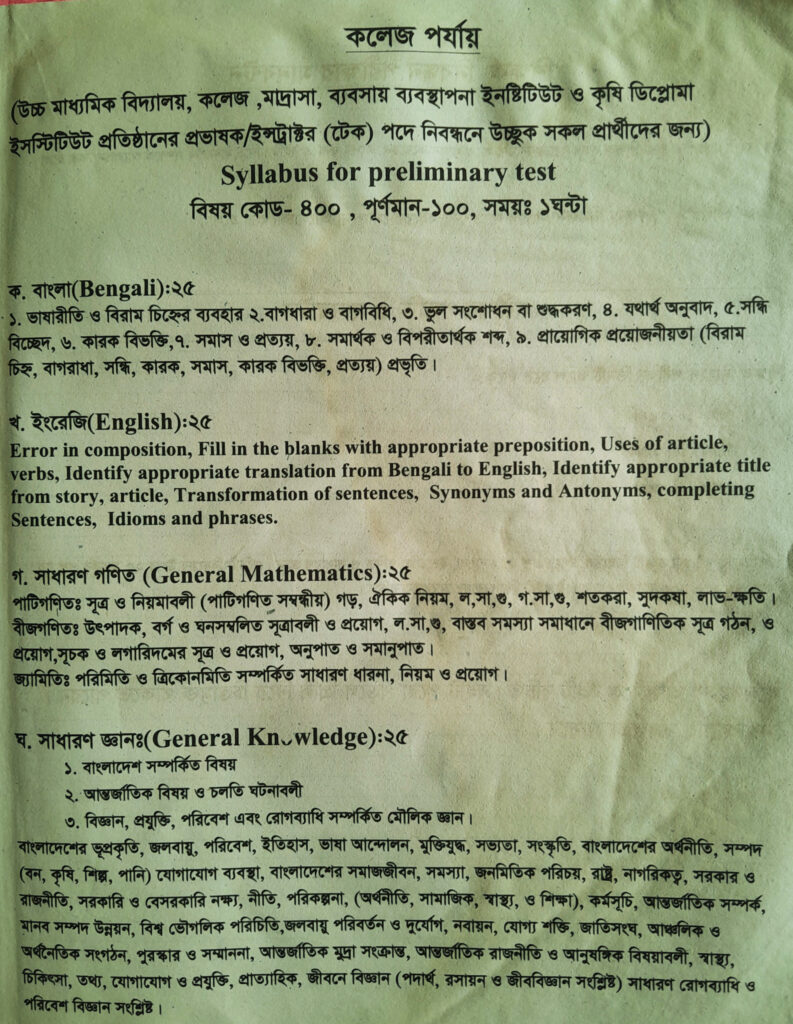 কলেজ পর্যায়
(উচ্চ মাধ্যমিক বিদ্যালয়, কলেজ ,মাদ্রাসা, ব্যবসায় ব্যবস্থাপনা ইনষ্টিটিউট ও কৃষি ডিপ্লোমা
ইসস্টিটিউট প্রতিষ্ঠানের প্রভাষক/ইন্সট্রাক্টর (টেক) পদে নিবন্ধনে উচ্ছুক সকল প্রার্থীদের জন্য)
Syllabus for preliminary test
বিষয় কোড- ৪০০ , পূর্ণমান-১০০, সময়ঃ ১ঘন্টা
ক. বাংলা(Bengali):২৫
১. ভাষারীতি ও বিরাম চিহ্নের ব্যবহার ২.বাগধারা ও বাগবিধি, ৩. ভুল সংশোধন বা শুদ্ধকরণ, ৪. যথার্থ অনুবাদ, ৫.সন্ধি
বিচ্ছেদ, ৬. কারক বিভক্তি,৭. সমাস ও প্রত্যয়, ৮. সমার্থক ও বিপরীতার্থক শব্দ, ৯. প্রায়োগিক প্রয়োজনীয়তা (বিরাম
চিহ্ন, বাগরাধা, সন্ধি, কারক, সমাস, কারক বিভক্তি, প্রত্যয়) প্রভৃতি।
খ. ইংরেজি(English):২৫
Error in composition, Fill in the blanks with appropriate preposition, Uses of article,
verbs, Identify appropriate translation from Bengali to English, Identify appropriate title
from story, article, Transformation of sentences, Synonyms and Antonyms, completing
Sentences, Idioms and phrases.
গ. সাধারণ গণিত (General Mathematics):২৫
পাটিগণিতঃ সূত্র ও নিয়মাবলী (পাটিগণিত সম্বন্ধীয়) গড়, ঐকিক নিয়ম, ল,সা,গু, গ.সা,গু, শতকরা, সুদকষা, লাভ-ক্ষতি।
বীজগণিতঃ উৎপাদক, বর্গ ও ঘনসম্বলিত সূত্রাবলী ও প্রয়োগ, ল.সা,গু, বাস্তব সমস্যা সমাধানে বীজগাণিতিক সূত্র গঠন, ও
প্রয়োগ,সূচক ও লগারিদমের সূত্র ও প্রয়োগ, অনুপাত ও সমানুপাত।
জ্যামিতিঃ পরিমিতি ও ত্রিকোনমিতি সম্পর্কিত সাধারণ ধারনা, নিয়ম ও প্রয়োগ।
ঘ. সাধারণ জ্ঞানঃ(General Knowledge):২৫
১. বাংলাদেশ সম্পর্কিত বিষয়
২. আন্তর্জাতিক বিষয় ও চলতি ঘটনাবলী
৩. বিজ্ঞান, প্রযুক্তি, পরিবেশ এবং রোগব্যাধি সম্পর্কিত মৌলিক জ্ঞান।
বাংলাদেশের ভূপ্রকৃতি, জলবায়ু, পরিবেশ, ইতিহাস, ভাষা আন্দোলন, মুক্তিযুদ্ধ, সভ্যতা, সংস্কৃতি, বাংলাদেশের অর্থনীতি, সম্পদ
(বন, কৃষি, শিল্প, পানি) যোগাযোগ ব্যবস্থা, বাংলাদেশের সমাজজীবন, সমস্যা, জনমিতিক পরিচয়, রাষ্ট্র, নাগরিকত্ব, সরকার ও
রাজনীতি, সরকারি ও বেসরকারি লক্ষ্য, নীতি, পরিকল্পনা, (অর্থনীতি, সামাজিক, স্বাস্থ্য, ও শিক্ষা), কর্মসূচি, আন্তর্জাতিক সম্পর্ক,
মানব সম্পদ উন্নয়ন, বিশ্ব ভৌগলিক পরিচিতি,জলবায়ু পরিবর্তন ও দুর্যোগ, নবায়ন, যোগ্য শক্তি, জাতিসংঘ, আঞ্চলিক ও
অর্থনৈতিক সংগঠন, পুরস্কার ও সম্মাননা, আন্তর্জাতিক মুদ্রা সংক্রান্ত, আন্তর্জাতিক রাজনীতি ও আনুষঙ্গিক বিষয়াবলী, স্বাস্থ্য,
চিকিৎসা, তথ্য, যোগাযোগ ও প্রযুক্তি, প্রাত্যাহিক, জীবনে বিজ্ঞান (পদার্থ, রসায়ন ও জীববিজ্ঞান সংশ্লিষ্ট) সাধারণ রোগব্যাধি ও
পরিবেশ বিজ্ঞান সংশ্লিষ্ট।